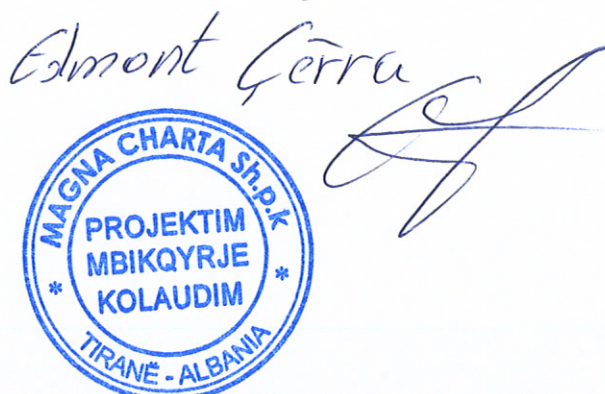 Edmont Çërra
MAGNA CHARTA Sh.p.k
PROJEKTIM
MBIKQYRJE
KOLAUDIM
* *
TIRANË - ALBANIA